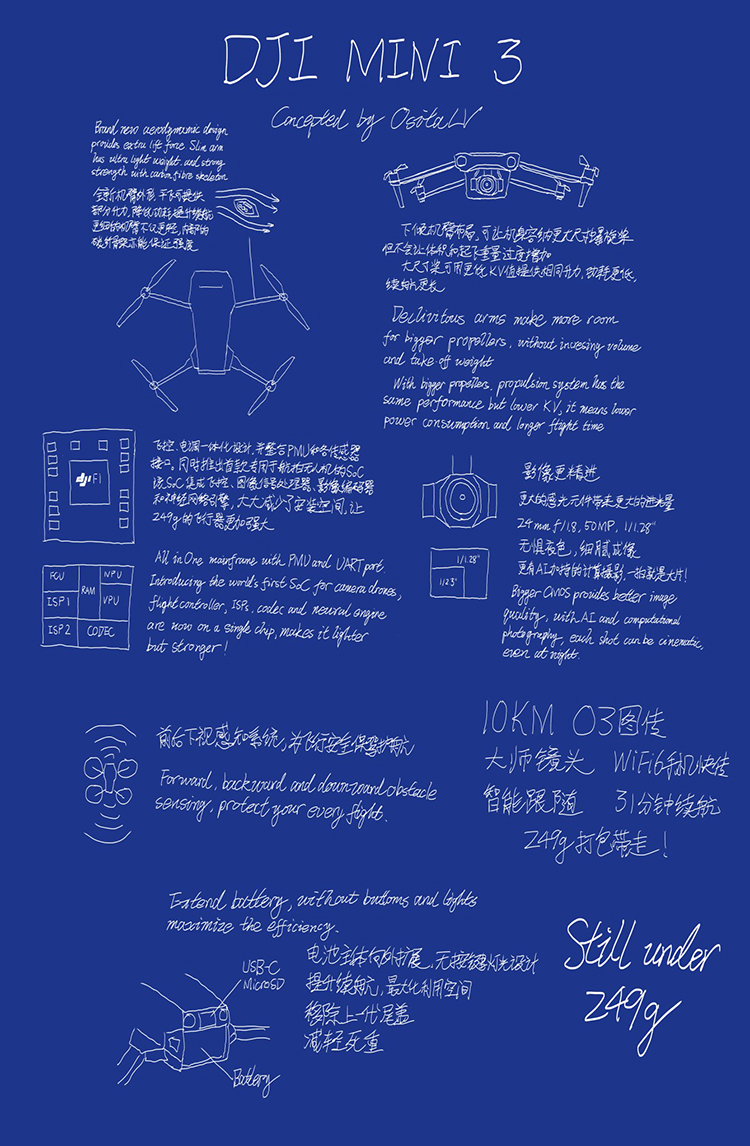 DJI MINI 3
Concepted by OsitaLV
Brand new aerodynamic design
provides extra lift force Slim arm
has ultra light weight and strong
strength with carbon fibre skeleton
全新机臂外形，平飞可提供
部分升力，降低功耗提升续航
更细的机臂不仅更轻，内部的
碳纤骨架亦能保证强度
下倾机臂布局，可让机身容纳更大尺寸螺旋桨
但不会让体积和起飞重量过度增加
大尺寸桨可用更低KV值提供相同升力，功耗更低，
续航更长
Declivitous arms make more room
for bigger propellers, without incresing volume
and take-off weight
With bigger propellers, propulsion system has the
same performance but lower KV, it means lower
power consumption and longer flight time
dji F1
飞控、电调一体化设计，并整合PMU和各传感器
接口。同时推出首款专用于航拍无人机的SoC
该SoC集成飞控、图像信号处理器、影像编码器
和神经网络引擎，大大减少了安装空间，让
249g的飞行器更加强大
影像更精进
更大的感光元件带来更大的进光量
24mm f/1.8, 50MP, 1/1.28"
无惧夜色，细腻成像
更有AI加持的计算摄影，一拍就是大片！
1/1.28"
1/2.3"
Bigger CMOS provides better image
quality, with AI and computational
photography, each shot can be cinematic,
even at night.
FCU
NPU
RAM
ISP1
VPU
ISP2
CODEC
All in One mainframe with PMU and UART port.
Introducing the world's first SoC for camera drones,
flight controller, ISPs, codec and neural engine
are now on a single chip, makes it lighter
but stronger!
前后下视感知系统，为飞行安全保驾护航
Forward, backward and downward obstacle
sensing, protect your every flight.
10KM O3图传
大师镜头 WiFi6手机快传
智能跟随 31分钟续航
249g打包带走！
Extend battery, without buttoms and lights
maximize the efficiency.
USB-C
MicroSD
Battery
电池主体向外扩展，无按键灯光设计
提升续航，最大化利用空间
移除上一代尾盖
减轻死重
Still under
249g